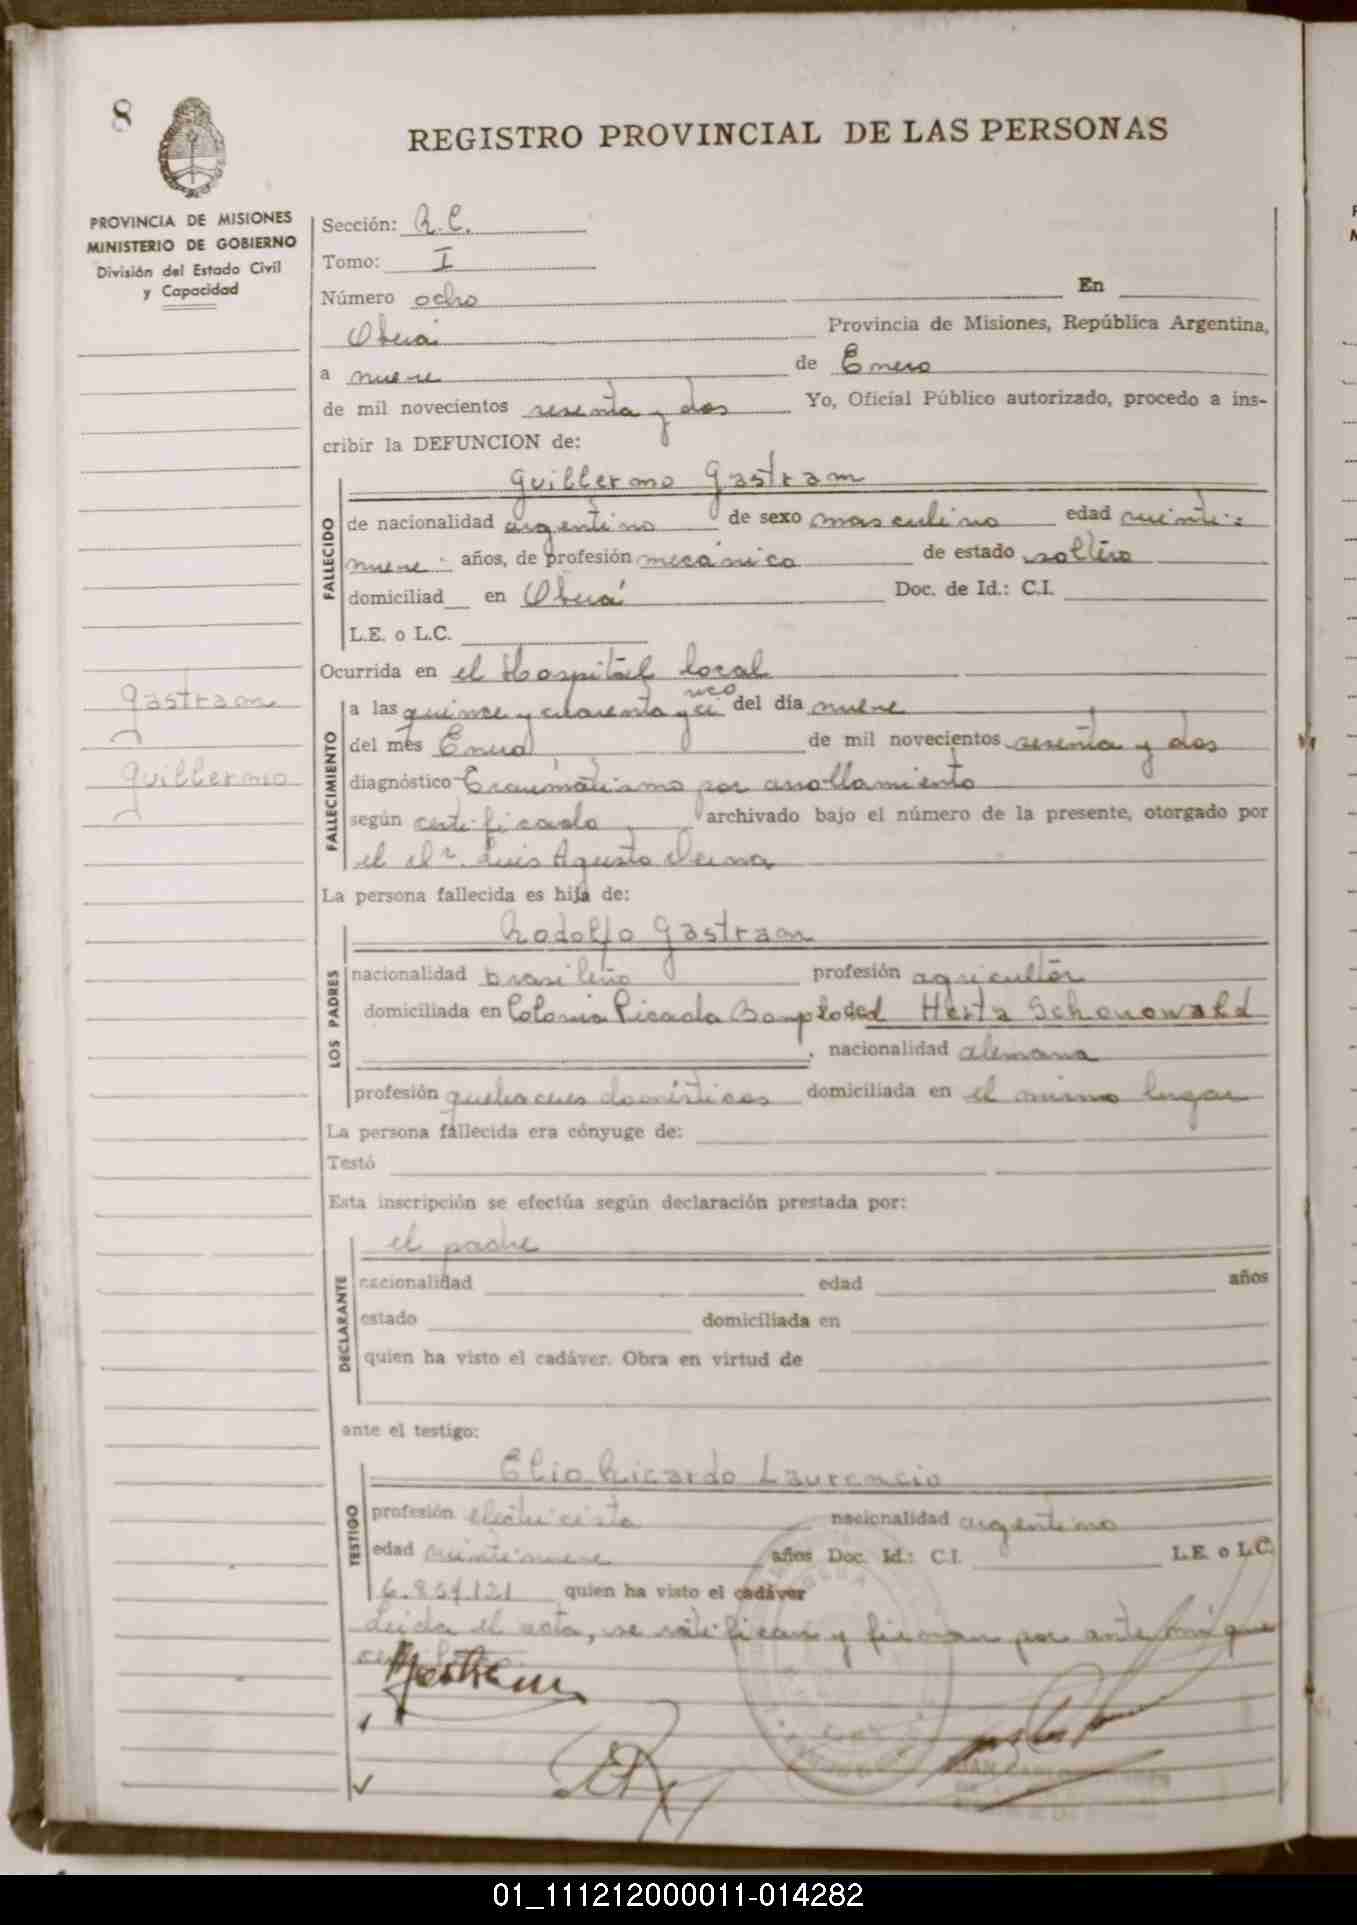 8
REGISTRO PROVINCIAL DE LAS PERSONAS
PROVINCIA DE MISIONES
MINISTERIO DE GOBIERNO
División del Estado Civil
y Capacidad
Sección: R.C.
Tomo: I
Número ocho En
Oberá Provincia de Misiones, República Argentina,
a nueve de Enero
de mil novecientos sesenta y dos Yo, Oficial Público autorizado, procedo a ins-
cribir la DEFUNCION de:
Guillermo Gastram
FALLECIDO
de nacionalidad argentino de sexo masculino edad veinti-
nueve años, de profesión mecánico de estado soltero
domiciliad en Oberá Doc. de Id.: C.I.
L.E. o L.C.
Ocurrida en el Hospital local
Gastram
Guillermo
FALLECIMIENTO
a las quince y cuarenta y cinco del día nueve
del mes Enero de mil novecientos sesenta y dos
diagnóstico Traumatismo por arrollamiento
según certificado archivado bajo el número de la presente, otorgado por
el dr. Luis Agusto
La persona fallecida es hija de:
Rodolfo Gastram
LOS PADRES
nacionalidad brasileño profesión agricultor
domiciliada en Colonia Picada Bompland Herta Schonowald
, nacionalidad alemana
profesión quehaceres domésticos domiciliada en el mismo lugar
La persona fallecida era cónyuge de:
Testó
Esta inscripción se efectúa según declaración prestada por:
el padre
DECLARANTE
nacionalidad edad años
estado domiciliada en
quien ha visto el cadáver. Obra en virtud de
ante el testigo:
Elio Ricardo Laurencio
TESTIGO
profesión electricista nacionalidad argentino
edad veintinueve años Doc. Id.: C.I. L.E. o L.C.
quien ha visto el cadáver
Leida el acta, se ratifican y firman por ante mí que
Gastram
01_111212000011-014282